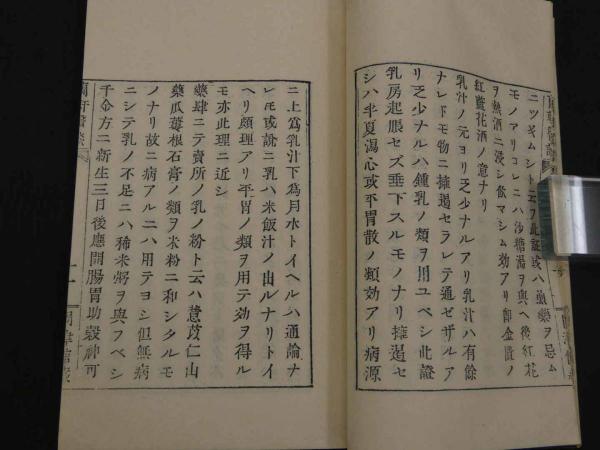 ニツギムシト云フ此証或ハ血藥ヲ忌ム
モノアリコレニハ沙糖湯ヲ與ヘ後紅花
ヲ熱酒ニ浸シ飲マシム効アリ即金匱ノ
紅藍花酒ノ意ナリ
乳汁ノ元ヨリ乏少ナルアリ乳汁ハ有餘
ナレドモ物ニ擁遏セラレテ通ゼザルア
リ乏少ナルハ鍾乳ノ類ヲ用ユベシ此證
乳房起脹セズ垂下スルモノナリ擁遏セ
シハ半夏瀉心或平胃散ノ類効アリ病源
ニ上爲乳汁下爲月水トイヘルハ通論ナ
レモ或説ニ乳ハ米飯汁ノ出ルナリトイ
ヘリ顔理アリ平胃ノ類ヲ用テ効ヲ得ル
モ亦此理ニ近シ
藥肆ニテ賣所ノ乳ノ粉ト云ハ薏苡仁山
藥瓜蔞根石膏ノ類ヲ米粉ニ和シタルモ
ノナリ故ニ病アルニハ用テヨシ但無病
ニシテ乳ノ不足ニハ稀米粥ヲ與フベシ
千金方ニ新生三日後應開腸胃助穀神可